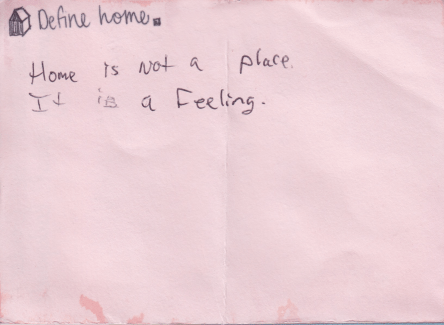 Define home.
Home is not a place.
It is a Feeling.